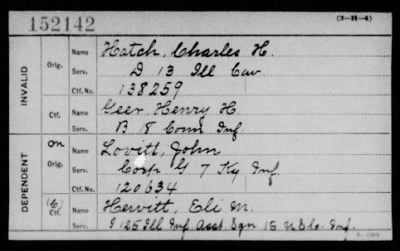 152142
(3-H-4)
INVALID
Orig.
Name Hatch, Charles H.
Serv. D 13 Ill Cav
Ctf. No. 138259
Ctf.
Name Geer Henry H.
Serv. B 18 Conn Inf.
DEPENDENT
On
Orig.
Name Lovitt, John
Serv. Corp G 7 Ky Inf.
Ctf. No. 120634
(C)
Ctf.
Name Hewitt, Eli M.
Serv. 125 Ill Inf. Asst. Sgn 15 Inf.